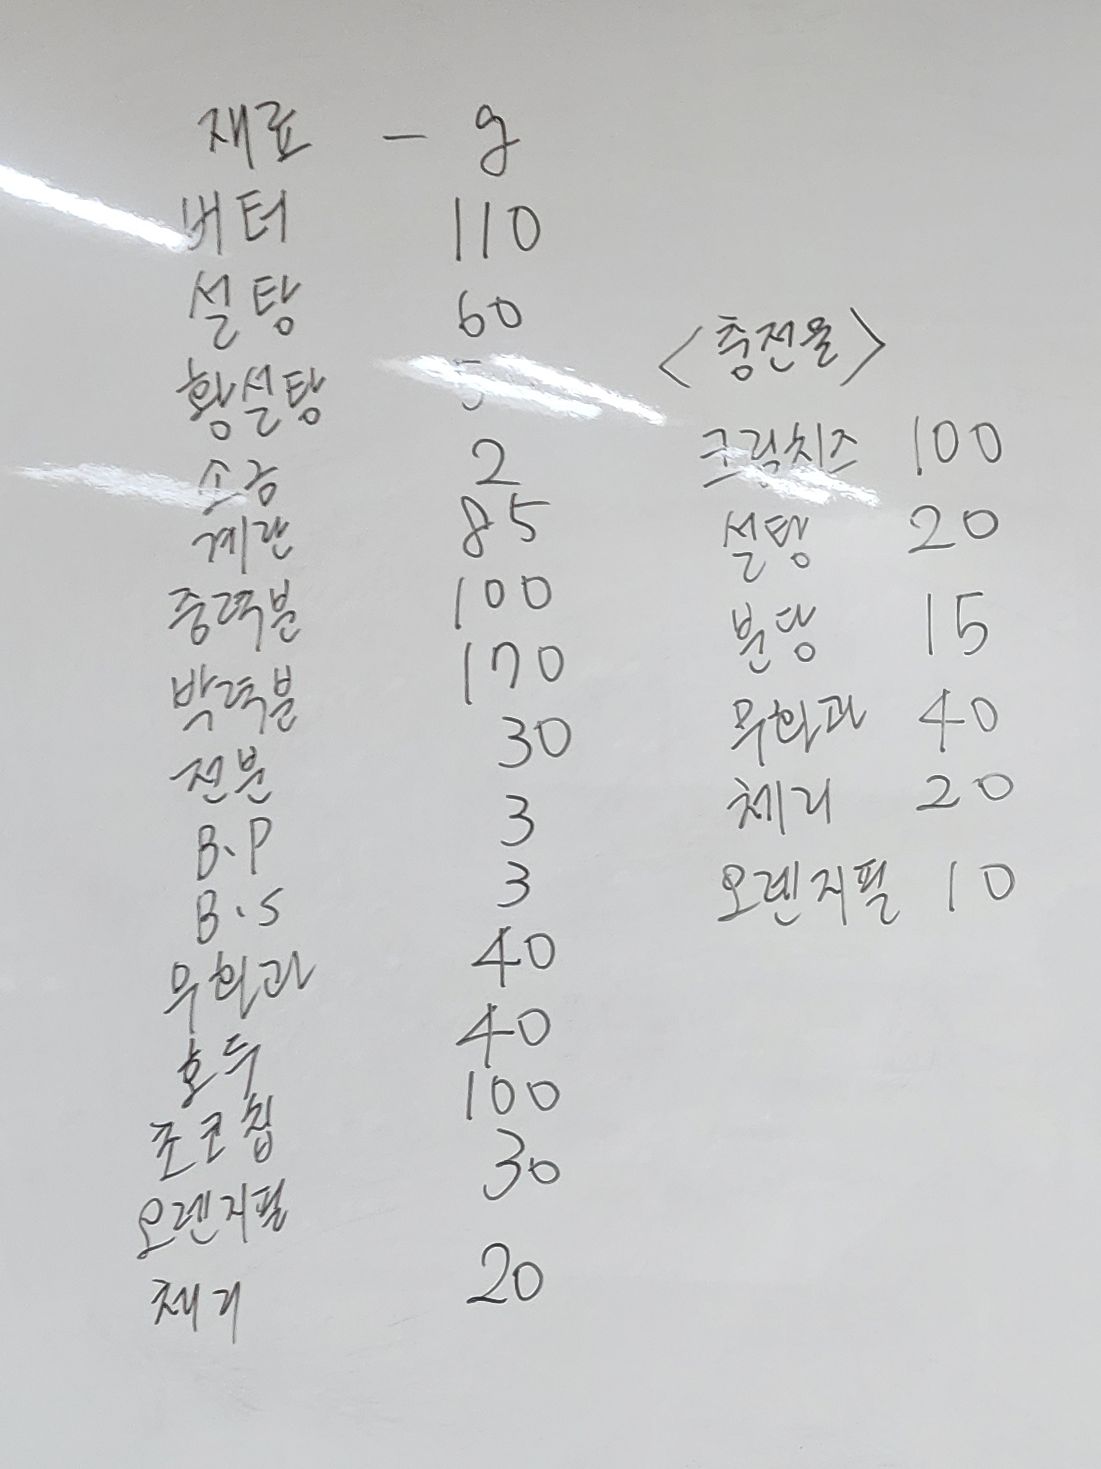 재료 - g
버터 110
설탕 60
황설탕
소금 2
계란 85
중력분 100
박력분 170
전분 30
B.P 3
B.S 3
무화과 40
호두 40
초코칩 100
오렌지필 30
체리 20
<충전물>
크림치즈 100
설탕 20
분당 15
무화과 40
체리 20
오렌지필 10